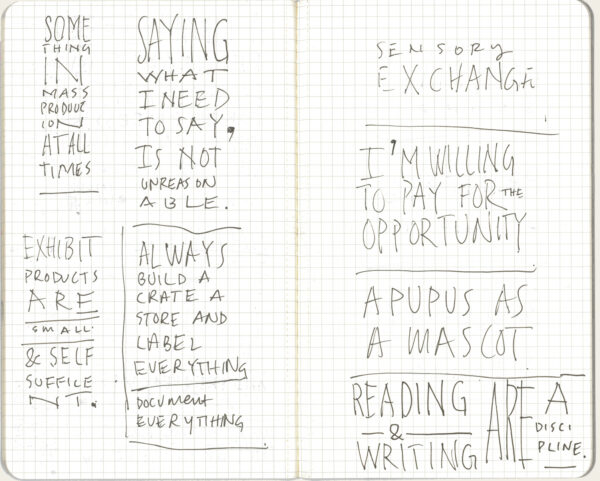 SOME
THING
IN
MASS
PRODUCT
ION
AT ALL
TIMES
EXHIBIT
PRODUCTS
ARE
SMALL
& SELF
SUFFICIE
NT.
SAYING
WHAT
I NEED
TO SAY,
IS NOT
UNREASON
ABLE.
ALWAYS
BUILD A
CRATE A
STORE AND
LABEL
EVERYTHING
DOCUMENT
EVERYTHING
SENSORY
EXCHANGE
I'M WILLING
TO PAY FOR THE
OPPORTUNITY
A PUPUS AS
A MASCOT
READING
&
WRITING
ARE
A
DISCI
PLINE.